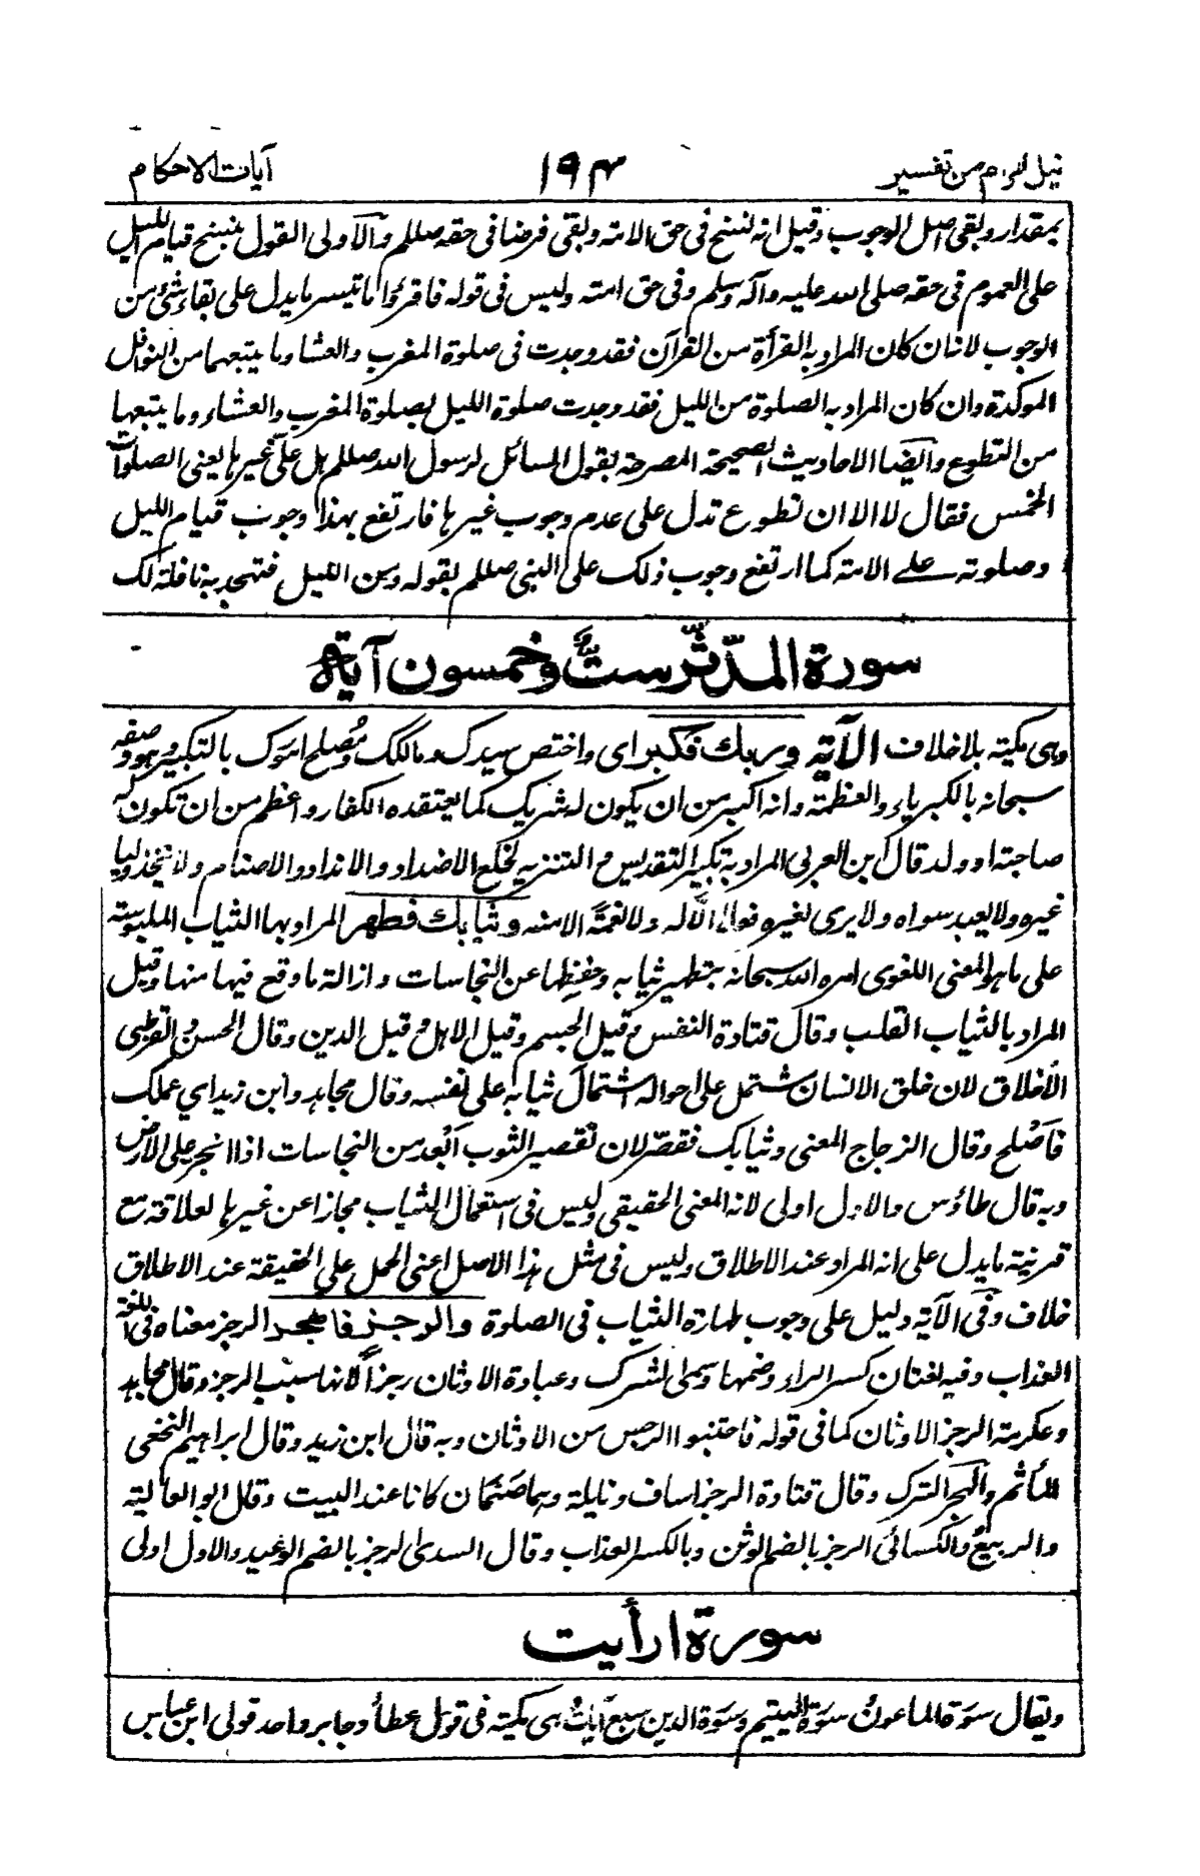 نيل المرام من تفسير ١٩٤ آيات الاحكام
بمقدار وبقى اصل الوجوب وقيل انه نسخ فى حق الامة وبقى فرضا فى حقه صللم والاولى القول بنسخ قيام الليل
على العموم فى حقه صلى الله عليه وآله وسلم وفى حق امته وليس فى قوله فاقرؤا ما تيسر ما يدل على بقاء شئ من
الوجوب لانه ان كان المراد به القرأة من القرآن فقد وجدت فى صلوة المغرب والعشا وما يتبعهما من النوافل
الموكدة وان كان المراد به الصلوة من الليل فقد وجدت صلوة الليل بصلوة المغرب والعشاء وما يتبعها
من التطوع وايضا الاحاديث الصحيحة المصرحة بقول السائل لرسول الله صللم هل على غيرها يعنى الصلوات
الخمس فقال لا الا ان تطوع تدل على عدم وجوب غيرها فارتفع بهذا وجوب قيام الليل
وصلوته على الامة كما ارتفع وجوب ذلك على النبى صللم بقوله ومن الليل فتهجد به نافلة لك
سورة المدّثّر ستٌّ وخمسون آية
وهى مكية بلا خلاف الآية وربك فكبر اى واختص سيدك ومالكك ومصلح امرك بالتكبير وهو وصفه
سبحانه بالكبرياء والعظمة وانه اكبر من ان يكون له شريك كما يعتقده الكفار واعظم من ان تكون له
صاحبة او ولد قال ابن العربى المراد به تكبير التقديس والتنزيه لخلع الاضداد والانداد والاصنام ولا يتخذ وليا
غيره ولا يعبد سواه ولا يرى لغيره فعلا الا له ولا نعمة الا منه وثيابك فطهر المراد بها الثياب الملبوسة
على ما هو المعنى اللغوى امره الله سبحانه بتطهير ثيابه وحفظها عن النجاسات وازالة ما وقع فيها منها وقيل
المراد بالثياب القلب وقال قتادة النفس وقيل الجسم وقيل الاهل وقيل الدين وقال الحسن والقرظى
الأخلاق لان خلق الانسان مشتمل على احواله اشتمال ثيابه على نفسه وقال مجاهد وابن زيد اي عملك
فاصلح وقال الزجاج المعنى وثيابك فقصّر لان تقصير الثوب ابعد من النجاسات اذا انجر على الارض
وبه قال طاؤس والاول اولى لانه المعنى الحقيقى وليس فى استعمال الثياب مجازا عن غيرها لعلاقة مع
قرينة ما يدل على انه المراد عند الاطلاق وليس فى مثل هذا الاصل اعنى الحمل على الحقيقة عند الاطلاق
خلاف وفى الآية دليل على وجوب طهارة الثياب فى الصلوة والرجز فاهجر الرجز معناه فى اللغة
العذاب وفيه لغتان كسر الراء وضمها وسمى الشرك وعبادة الاوثان رجزاً لانها سبب الرجز وقال مجاهد
وعكرمة الرجز الاوثان كما فى قوله فاجتنبوا الرجس من الاوثان وبه قال ابن زيد وقال ابراهيم النخعى
المأثم والهجر الترك وقال قتادة الرجز اساف ونايلة وهما صنمان كانا عند البيت وقال ابو العالية
والربيع والكسائى الرجز بالضم الوثن وبالكسر العذاب وقال السدى الرجز بالضم الوعيد والاول اولى
سورة ارأيت
ويقال سورة الماعون سورة اليتيم وسورة الدين سبع آيات هى مكية فى قول عطأ وجابر واحد قولى ابن عباس